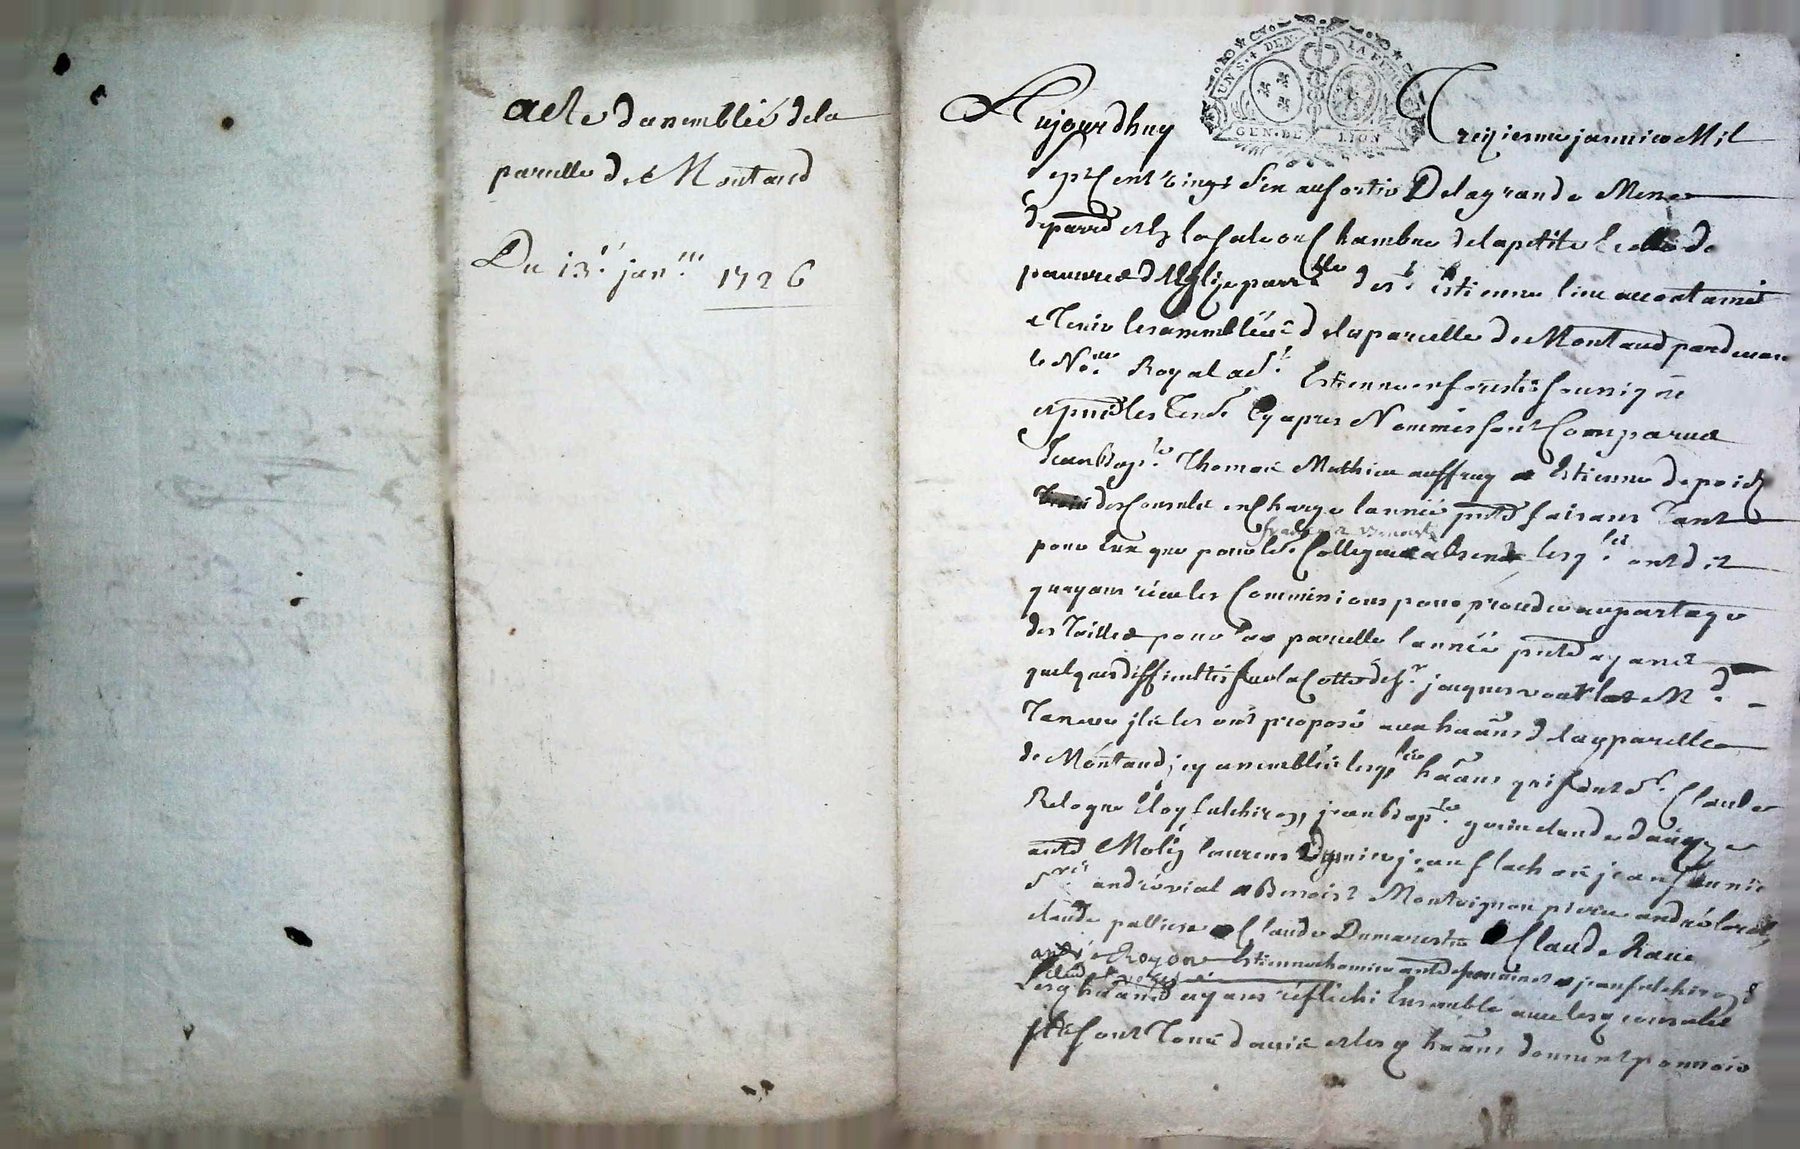 acte dassemblée dela
parcelle de Montaud
Du 13.e janer 1726
UN S. 4 DEN. LA FEUILLE
GEN. DE LION
Aujourdhuy Treizieme janvier Mil
sept Cent vingt Six au sortir Dela grande Messe
depar
la Sale ou Chambre dela petite Ecolle de
pauvres d Eglize parrlle de St Estienne lieu accoutumé
a Tenir les assemblées dela parcelle de Montaud pardevan
le Nore Royal a St Estienne en forests soussigné
et presents les Tes Cy apres Nommés sont Comparus
Jean Bapte Thomas Mathieu auffray et Estienne depoid
des Consuls en Charge lannée pnte faisans Tant
pour Eux que pour leurs Collegues absents lesqls ont dit
quayans réceu les Commissions pour proceder au partage
des Tailles pour lad parcelle lannée pnte ayant
quelques difficultés sur la Cotte de Sr jacques Md
Taneur ils les ont proposé aux haans de lad parcelle
de Montaud, icy assemblés lesqls haans qui sont Sr Claude
Relogue Eloy fulchiron, jean Bapte guerin claude dauzze
antd Moliy laurens jean flachat jean
andré vial Benoist Montuignon pierre andré
claude palliere Claude Dumarestre Claude Rave
andré Royon Estienne jean fulchiron
lesq haans ayans réfléchi Ensemble avec lesq consuls
Et sont Tous davis et lesq haans donnent pouvoir